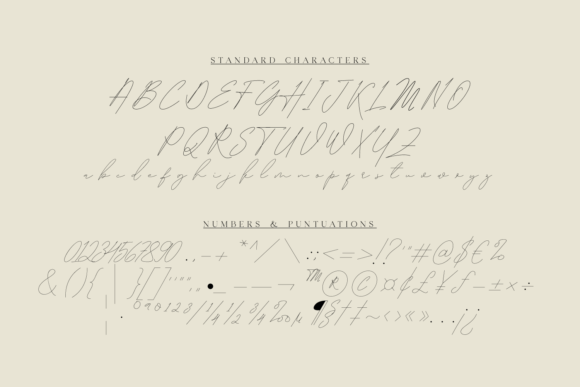 STANDARD CHARACTERS
ABCDEFGHIJKLMNO
PQRSTUVWXYZ
abcdefghijklmnopqrstuvwxyz
NUMBERS & PUNTUATIONS
01234567890.,-+ *^/\ :;<=>!?'"#@$€%
&(){|}[]
_—¬ ™®©¤¢£¥ƒ−±×÷
¶§†‡~‹›«»…¡¿